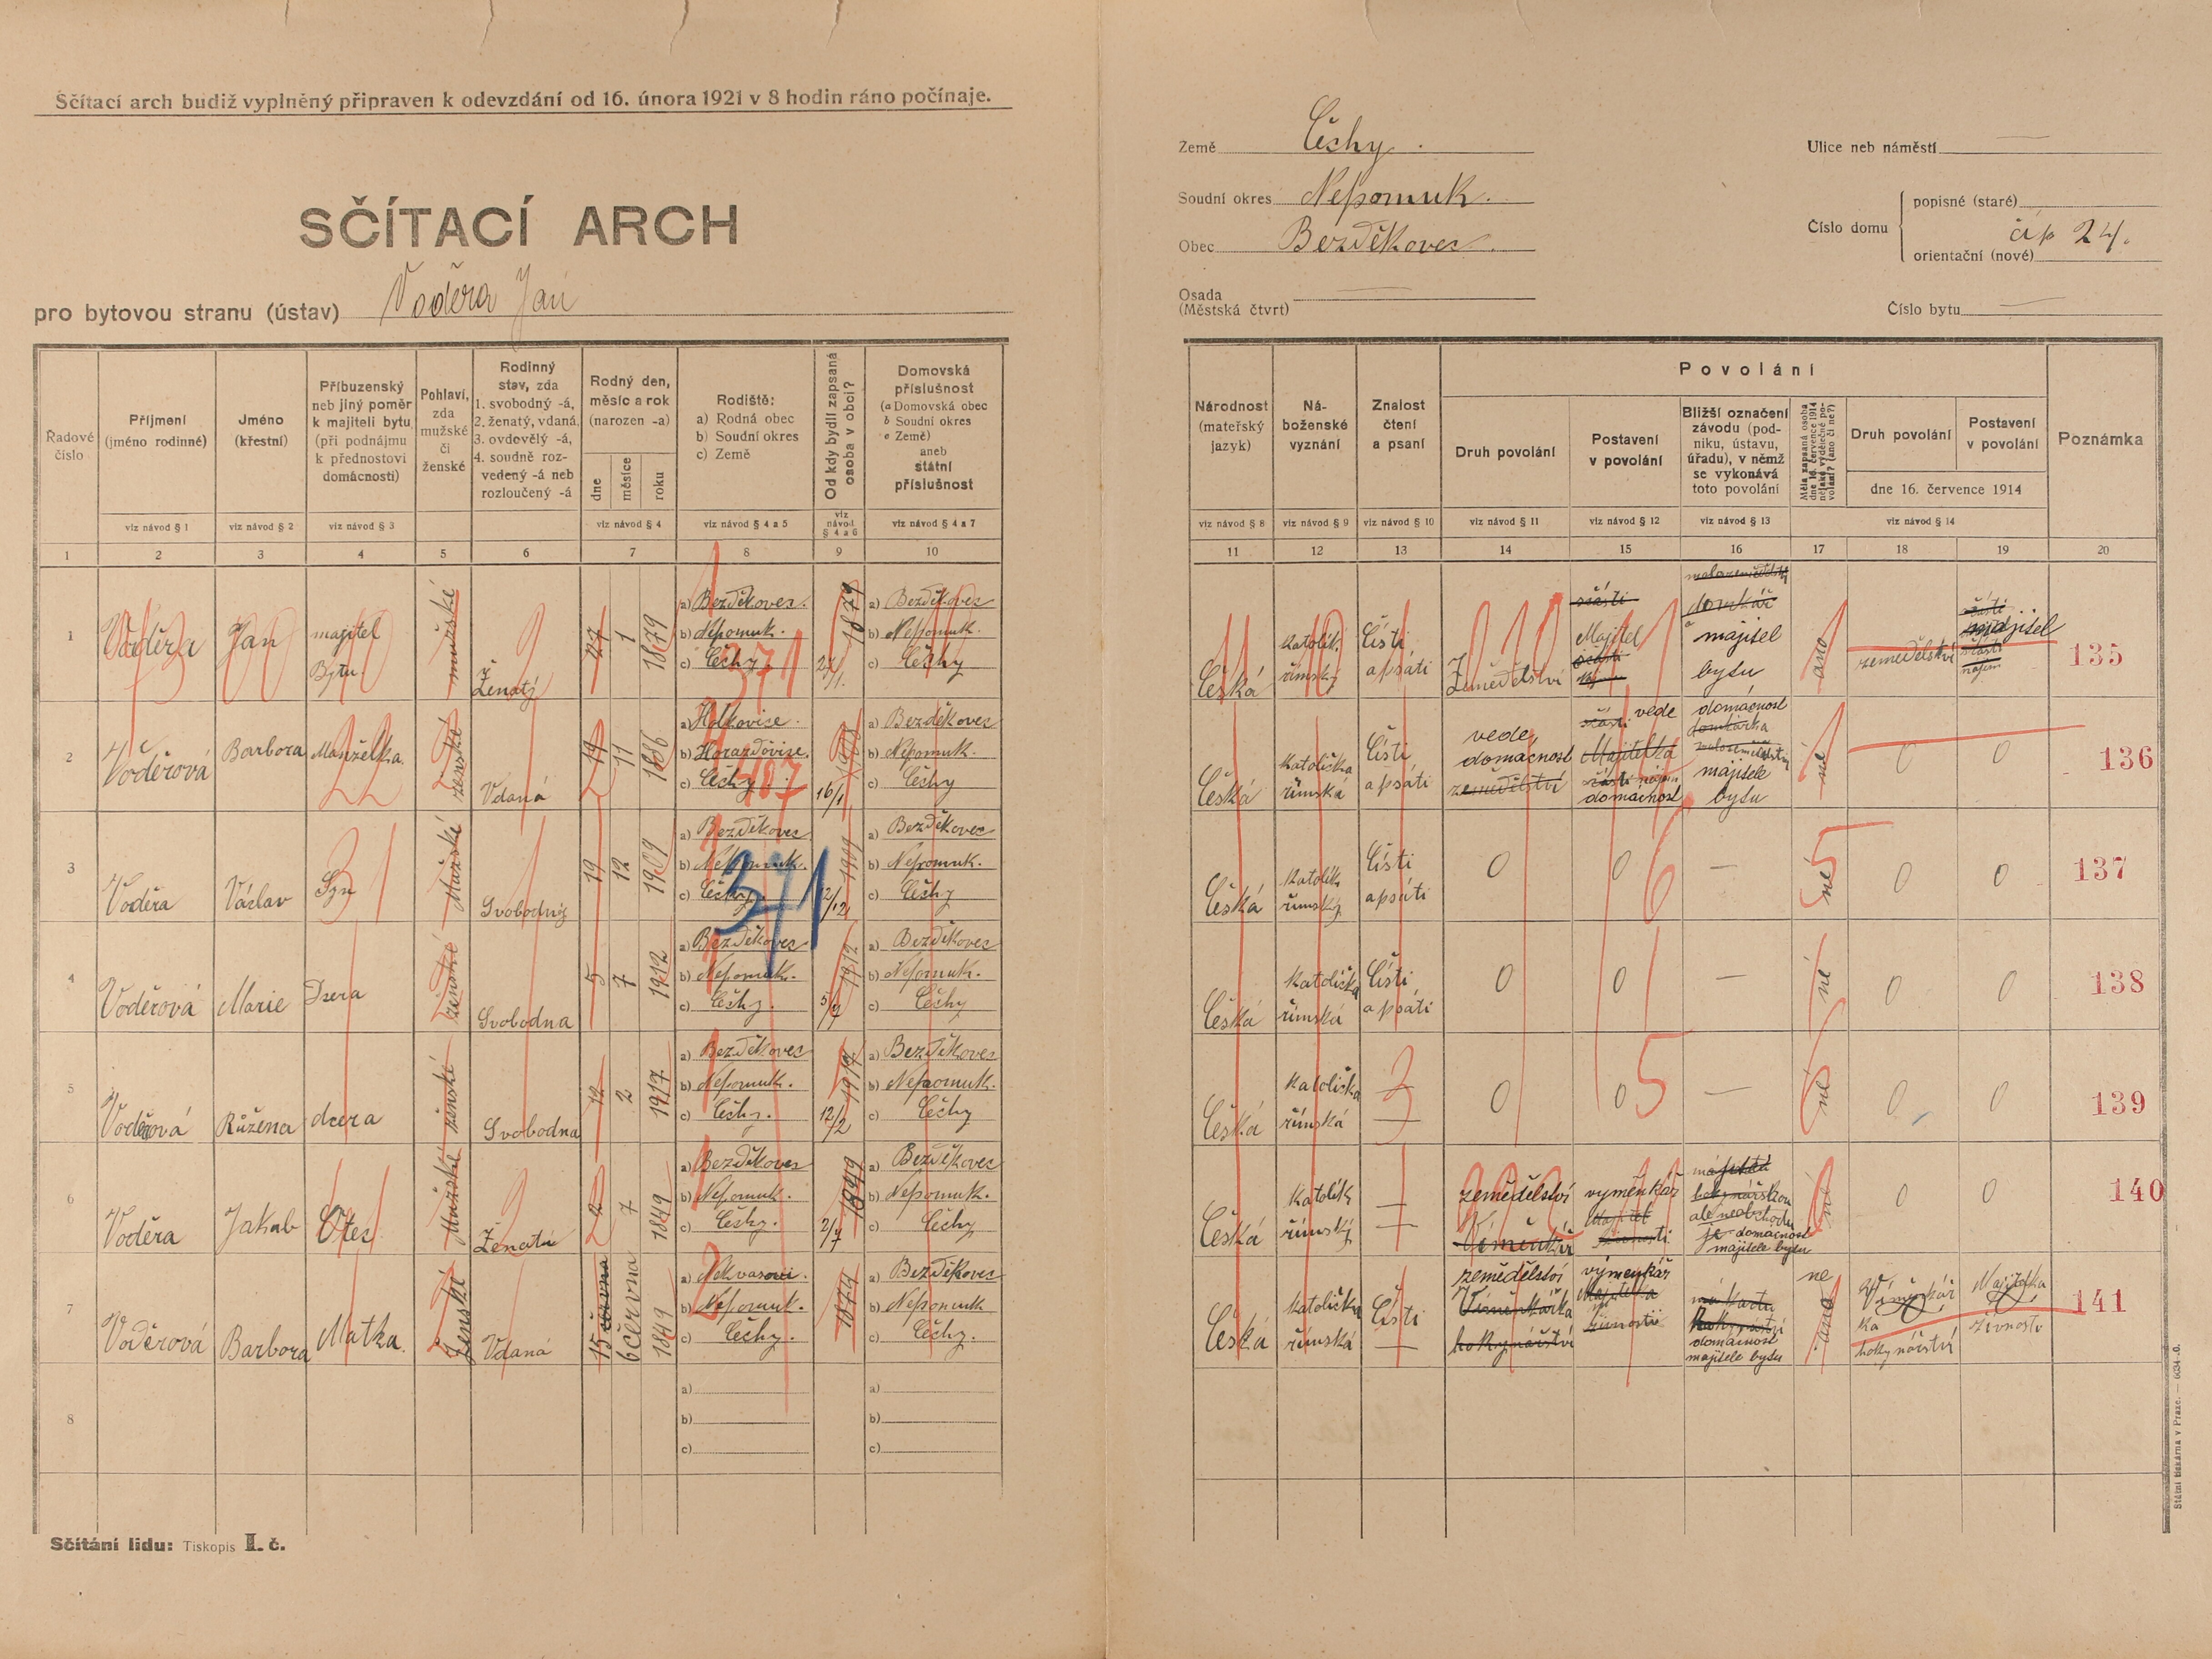 Sčítací arch budiž vyplněný připraven k odevzdání od 16. února 1921 v 8 hodin ráno počínaje.
SČÍTACÍ ARCH
pro bytovou stranu (ústav) Voděra Jan
Země Čechy.
Soudní okres Nepomuk.
Obec Bezděkovec.
Osada
(Městská čtvrt)
Ulice neb náměstí
Číslo domu
popisné (staré)
čp 24.
orientační (nové)
Číslo bytu
Řadové číslo
Příjmení (jméno rodinné)
Jméno (křestní)
Příbuzenský neb jiný poměr k majiteli bytu (při podnájmu k přednostovi domácnosti)
Pohlaví, zda mužské či ženské
Rodinný stav, zda 1. svobodný -á, 2. ženatý, vdaná, 3. ovdovělý -á, 4. soudně rozvedený -á neb rozloučený -á
Rodný den, měsíc a rok (narozen -a)
dne měsíce roku
Rodiště: a) Rodná obec b) Soudní okres c) Země
Od kdy bydlí zapsaná osoba v obci?
Domovská příslušnost (a Domovská obec b Soudní okres c Země) aneb státní příslušnost
Národnost (mateřský jazyk)
Náboženské vyznání
Znalost čtení a psaní
Povolání
Druh povolání
Postavení v povolání
Bližší označení závodu (podniku, ústavu, úřadu), v němž se vykonává toto povolání
Měla zapsaná osoba dne 16. července 1914 nějaké výdělečné povolání? (ano či ne?)
Druh povolání
Postavení v povolání
dne 16. července 1914
Poznámka
viz návod § 1 viz návod § 2 viz návod § 3 viz návod § 4 viz návod § 4 a 5 viz návod § 4 a 6 viz návod § 4 a 7 viz návod § 8 viz návod § 9 viz návod § 10 viz návod § 11 viz návod § 12 viz návod § 13 viz návod § 14
1 2 3 4 5 6 7 8 9 10 11 12 13 14 15 16 17 18 19 20
1 Voděra Jan majitel Bytu mužské Ženatý 27 1 1879
a) Bezděkovec. b) Nepomuk. c) Čechy
1879 27/1.
a) Bezděkovec b) Nepomuk. c) Čechy
Česká katolík. římský Čísti a psáti Zemědělství Majitel majitel bytu ano zemědělství majitel 135
2 Voděrová Barbora Manželka ženské Vdaná 19 11 1886
b) Horažďovice. c) Čechy
16/1
a) Bezděkovec b) Nepomuk. c) Čechy
Česká katolička římská Čísti a psáti vede domácnost zemědělství vede Majitelka domácnost domácnost domkářka majitele bytu ne 0 0 136
3 Voděra Václav Syn Mužské Svobodný 19 12 1909
a) Bezděkovec b) Nepomuk. c) Čechy
1909
a) Bezděkovec b) Nepomuk. c) Čechy
Česká katolík římský Čísti a psáti 0 0 — ne 0 0 137
4 Voděrová Marie Dcera ženské Svobodna 5 7 1912
a) Bezděkovec b) Nepomuk. c) Čechy.
1912 5/7
a) Bezděkovec b) Nepomuk. c) Čechy
Česká katolička římská Čísti a psáti 0 0 — ne 0 0 138
5 Voděrová Růžena dcera ženské Svobodna 12 2 1917
a) Bezděkovec b) Nepomuk. c) Čechy.
1917 12/2
a) Bezděkovec b) Nepomuk. c) Čechy
Česká katolička římská — 0 0 — ne 0 0 139
6 Voděra Jakub Otec Mužské Ženatí 2 7 1849
a) Bezděkovec b) Nepomuk. c) Čechy.
1849 2/7
a) Bezděkovec b) Nepomuk. c) Čechy
Česká katolík římský — zemědělství výměnkář domácnost majitele bytu ne 0 0 140
7 Voděrová Barbora Matka. ženské Vdaná 15 června 6 června 1849
b) Nepomuk. c) Čechy.
1874
a) Bezděkovec b) Nepomuk c) Čechy.
Česká katolička římská Čísti — zemědělství hokynářství výměnkář živnosti domácnost majitele bytu ne ano hokynářství živnosti 141
8 a) b) c) a) b) c)
371
Sčítání lidu: Tiskopis I. č.
Státní tiskárna v Praze. — 6034-.0.